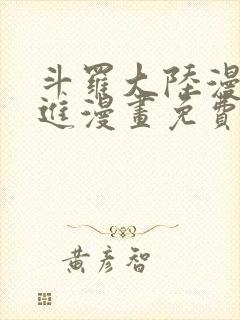 斗羅大陸漫
進漫畫免費
黃彥智